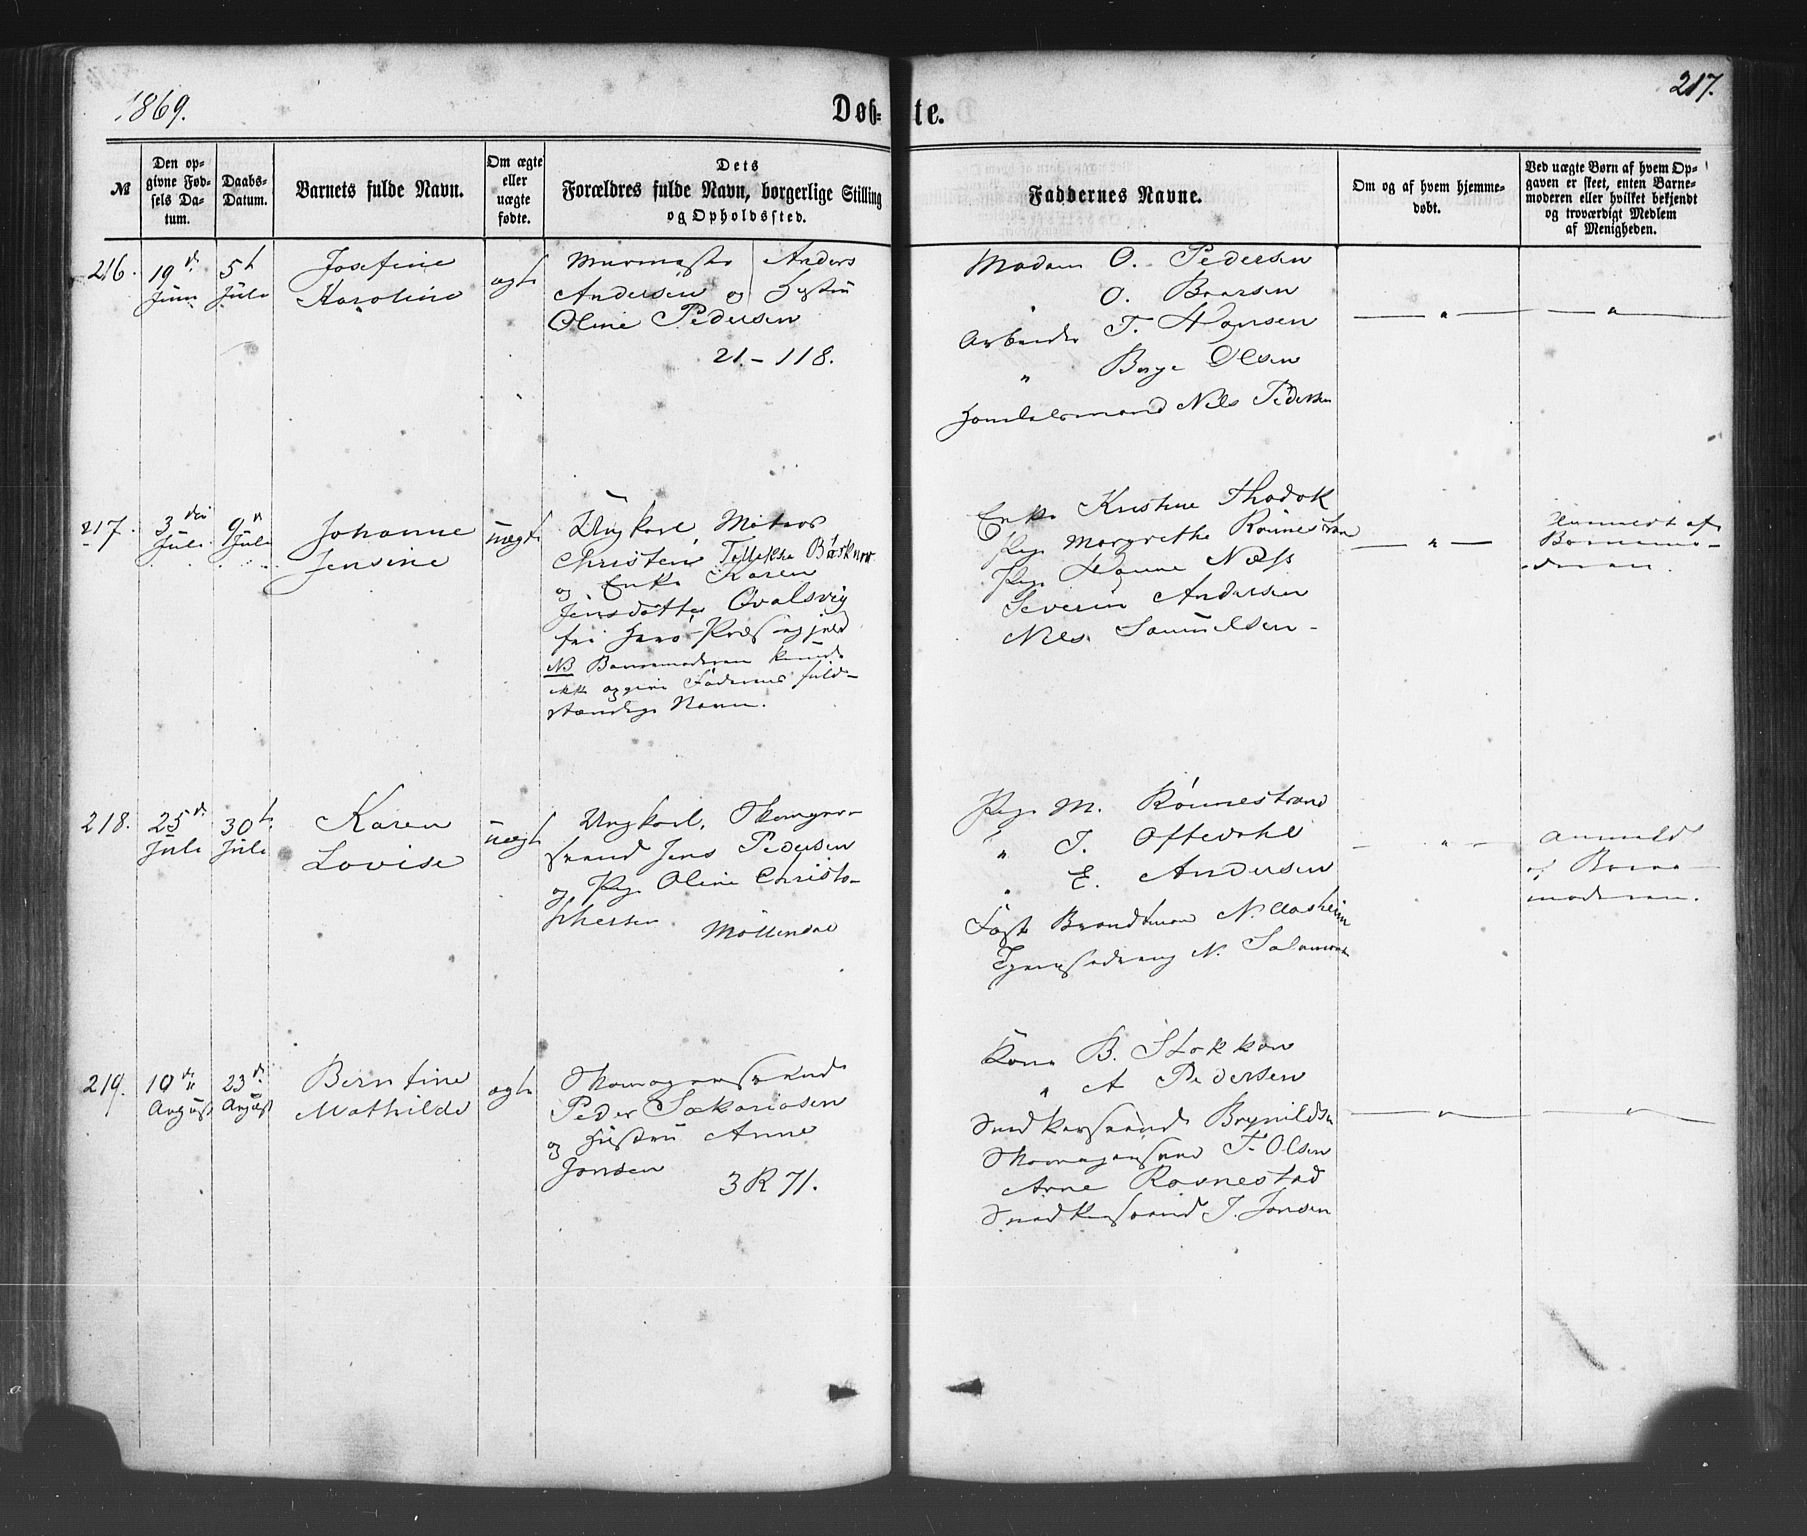 1869.
Døb-
te.
217.
№
Den opgivne Fødsels Datum.
Daabs-Datum.
Barnets fulde Navn.
Om ægte eller uægte fødte.
Dets Forældres fulde Navn, borgerlige Stilling og Opholdssted.
Faddernes Navne.
Om og af hvem hjemmedøbt.
Ved uægte Børn af hvem Opgaven er skeet, enten Barnemoderen eller hvilket bekjendt og troværdigt Medlem af Menigheden.
216.
19 d. Juni
5t Juli
Josefine
Karoline
ægte
Anders
Andersen og Hustru
Oline Pedersen
21.-118.
Madam O. Pedersen
" O. Baarsen
Arbeider T. Hansen
" Børge Olsen
Nils Pedersen
217.
3 die Juli
9 d Juli
Johanne
Jensine
uægte
Ungkarl, Matros
Christen
og Enke Karen
Jensdatter Qvalsvig
fra Herø Præstegjeld
NB Barnemoderen kunde
ikke opgive Faderens fuld-
stændige Navn.
Enke Kristine
Pige Margrethe
Pige Hanne Næss
Severin Andersen
Nils Samuelsen
Anmeldt af
Barnemo-
deren.
218.
25 d. Juli
30 t. Juli
Karen
Lovise
uægte
Ungkarl, Skomager-
svend Jens Pedersen
og Pige Oline Christo-
phersen
Möllendal
Pige M. Rönnestrand
" J. Oftedahl
" E. Andersen
Fast Brandtmand N. Aasheim
N.
Anmeldt
af Barne-
moderen.
219.
10 de August
23 d. August
Berntine
Mathilde
ægte
Skomagersvend
Peder Sakariasen
og Hustru Anne
Jonsen
3 R 71.
Kone B. Stokken
" A Pedersen
Snedkersvend Brynildsen
Skomagersvend T. Olsen
Arne Ravnestad
Snedkersvend J. Jonsen